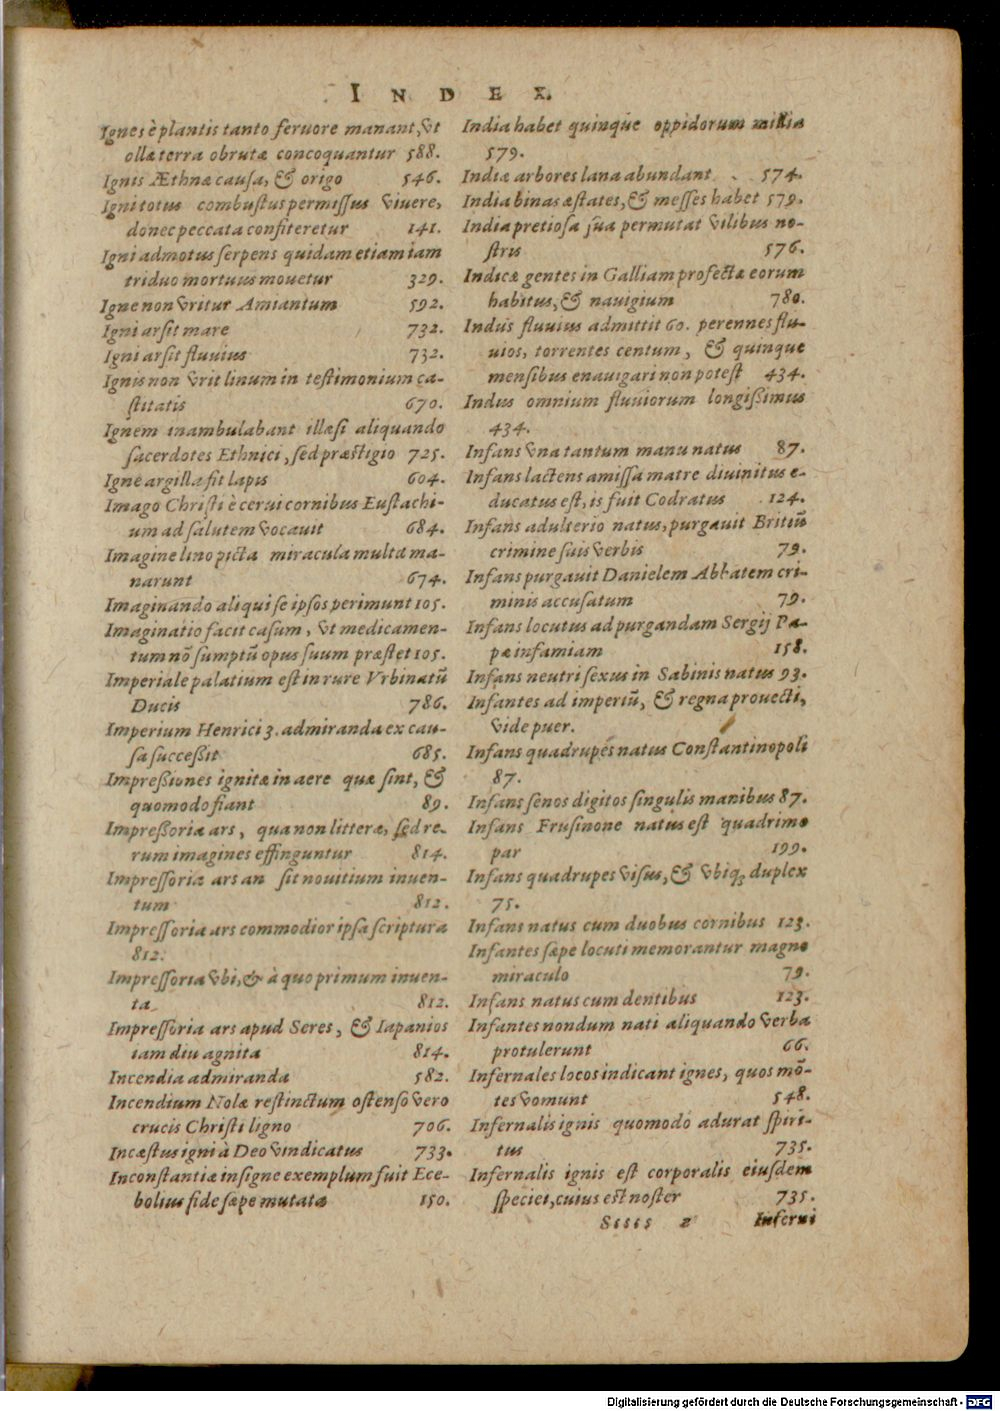 INDEX.
Ignes è plantis tanto feruore manant, vt
ollæ terra obrutæ concoquantur 588.
Ignis Æthnæ causa, & origo 546.
Igni totus combustus permissus viuere,
donec peccata confiteretur 141.
Igni admotus serpens quidam etiam iam
triduo mortuus mouetur 329.
Igne non vritur Amiantum 592.
Igni arsit mare 732.
Igni arsit fluuius 732.
Ignis non vrit linum in testimonium ca-
stitatis 670.
Ignem inambulabant illæsi aliquando
sacerdotes Ethnici, sed præstigio 725.
Igne argilla fit lapis 604.
Imago Christi è cerui cornibus Eustachi-
um ad salutem vocauit 684.
Imagine lino picta miracula multa ma-
narunt 674.
Imaginando aliqui se ipsos perimunt 105.
Imaginatio facit casum, vt medicamen-
tum nõ sumptũ opus suum præstet 105.
Imperiale palatium est in rure Vrbinatũ
Ducis 786.
Imperium Henrici 3. admiranda ex cau-
sa successit 685.
Impressiones ignitæ in aere quæ sint, &
quomodo fiant 89.
Impressoria ars, qua non litteræ, sed re-
rum imagines effinguntur 814.
Impressoria ars an sit nouitium inuen-
tum 812.
Impressoria ars commodior ipsa scriptura
812.
Impressoria vbi, & à quo primum inuen-
ta 812.
Impressoria ars apud Seres, & Iapanios
iam diu agnita 814.
Incendia admiranda 582.
Incendium Nolæ restinctum ostenso vero
crucis Christi ligno 706.
Incæstus igni à Deo vindicatus 733.
Inconstantiæ insigne exemplum fuit Ece-
bolius fide sæpe mutata 150.
India habet quinque oppidorum millia
579.
Indiæ arbores lana abundant 574.
India binas æstates, & messes habet 579.
India pretiosa sua permutat vilibus no-
stris 576.
Indicæ gentes in Galliam profectæ eorum
habitus, & nauigium 780.
Indus fluuius admittit 60. perennes flu-
uios, torrentes centum, & quinque
mensibus enauigari non potest 434.
Indus omnium fluuiorum longissimus
434.
Infans vna tantum manu natus 87.
Infans lactens amissa matre diuinitus e-
ducatus est, is fuit Codratus 124.
Infans adulterio natus, purgauit Britiũ
crimine suis verbis 79.
Infans purgauit Danielem Abbatem cri-
minis accusatum 79.
Infans locutus ad purgandam Sergij Pa-
pæ infamiam 158.
Infans neutri sexus in Sabinis natus 93.
Infantes ad imperiũ, & regna prouecti,
vide puer.
Infans quadrupes natus Constantinopoli
87.
Infans senos digitos singulis manibus 87.
Infans Frusinone natus est quadrimo
par 199.
Infans quadrupes visus, & vbiq; duplex
75.
Infans natus cum duobus cornibus 123.
Infantes sæpe locuti memorantur magno
miraculo 79.
Infans natus cum dentibus 123.
Infantes nondum nati aliquando verba
protulerunt 66.
Infernales locos indicant ignes, quos mõ-
tes vomunt 548.
Infernalis ignis quomodo adurat spiri-
tus 735.
Infernalis ignis est corporalis eiusdem
speciei, cuius est noster 735.
Sssss 2 Inferni
Digitalisierung gefördert durch die Deutsche Forschungsgemeinschaft - DFG